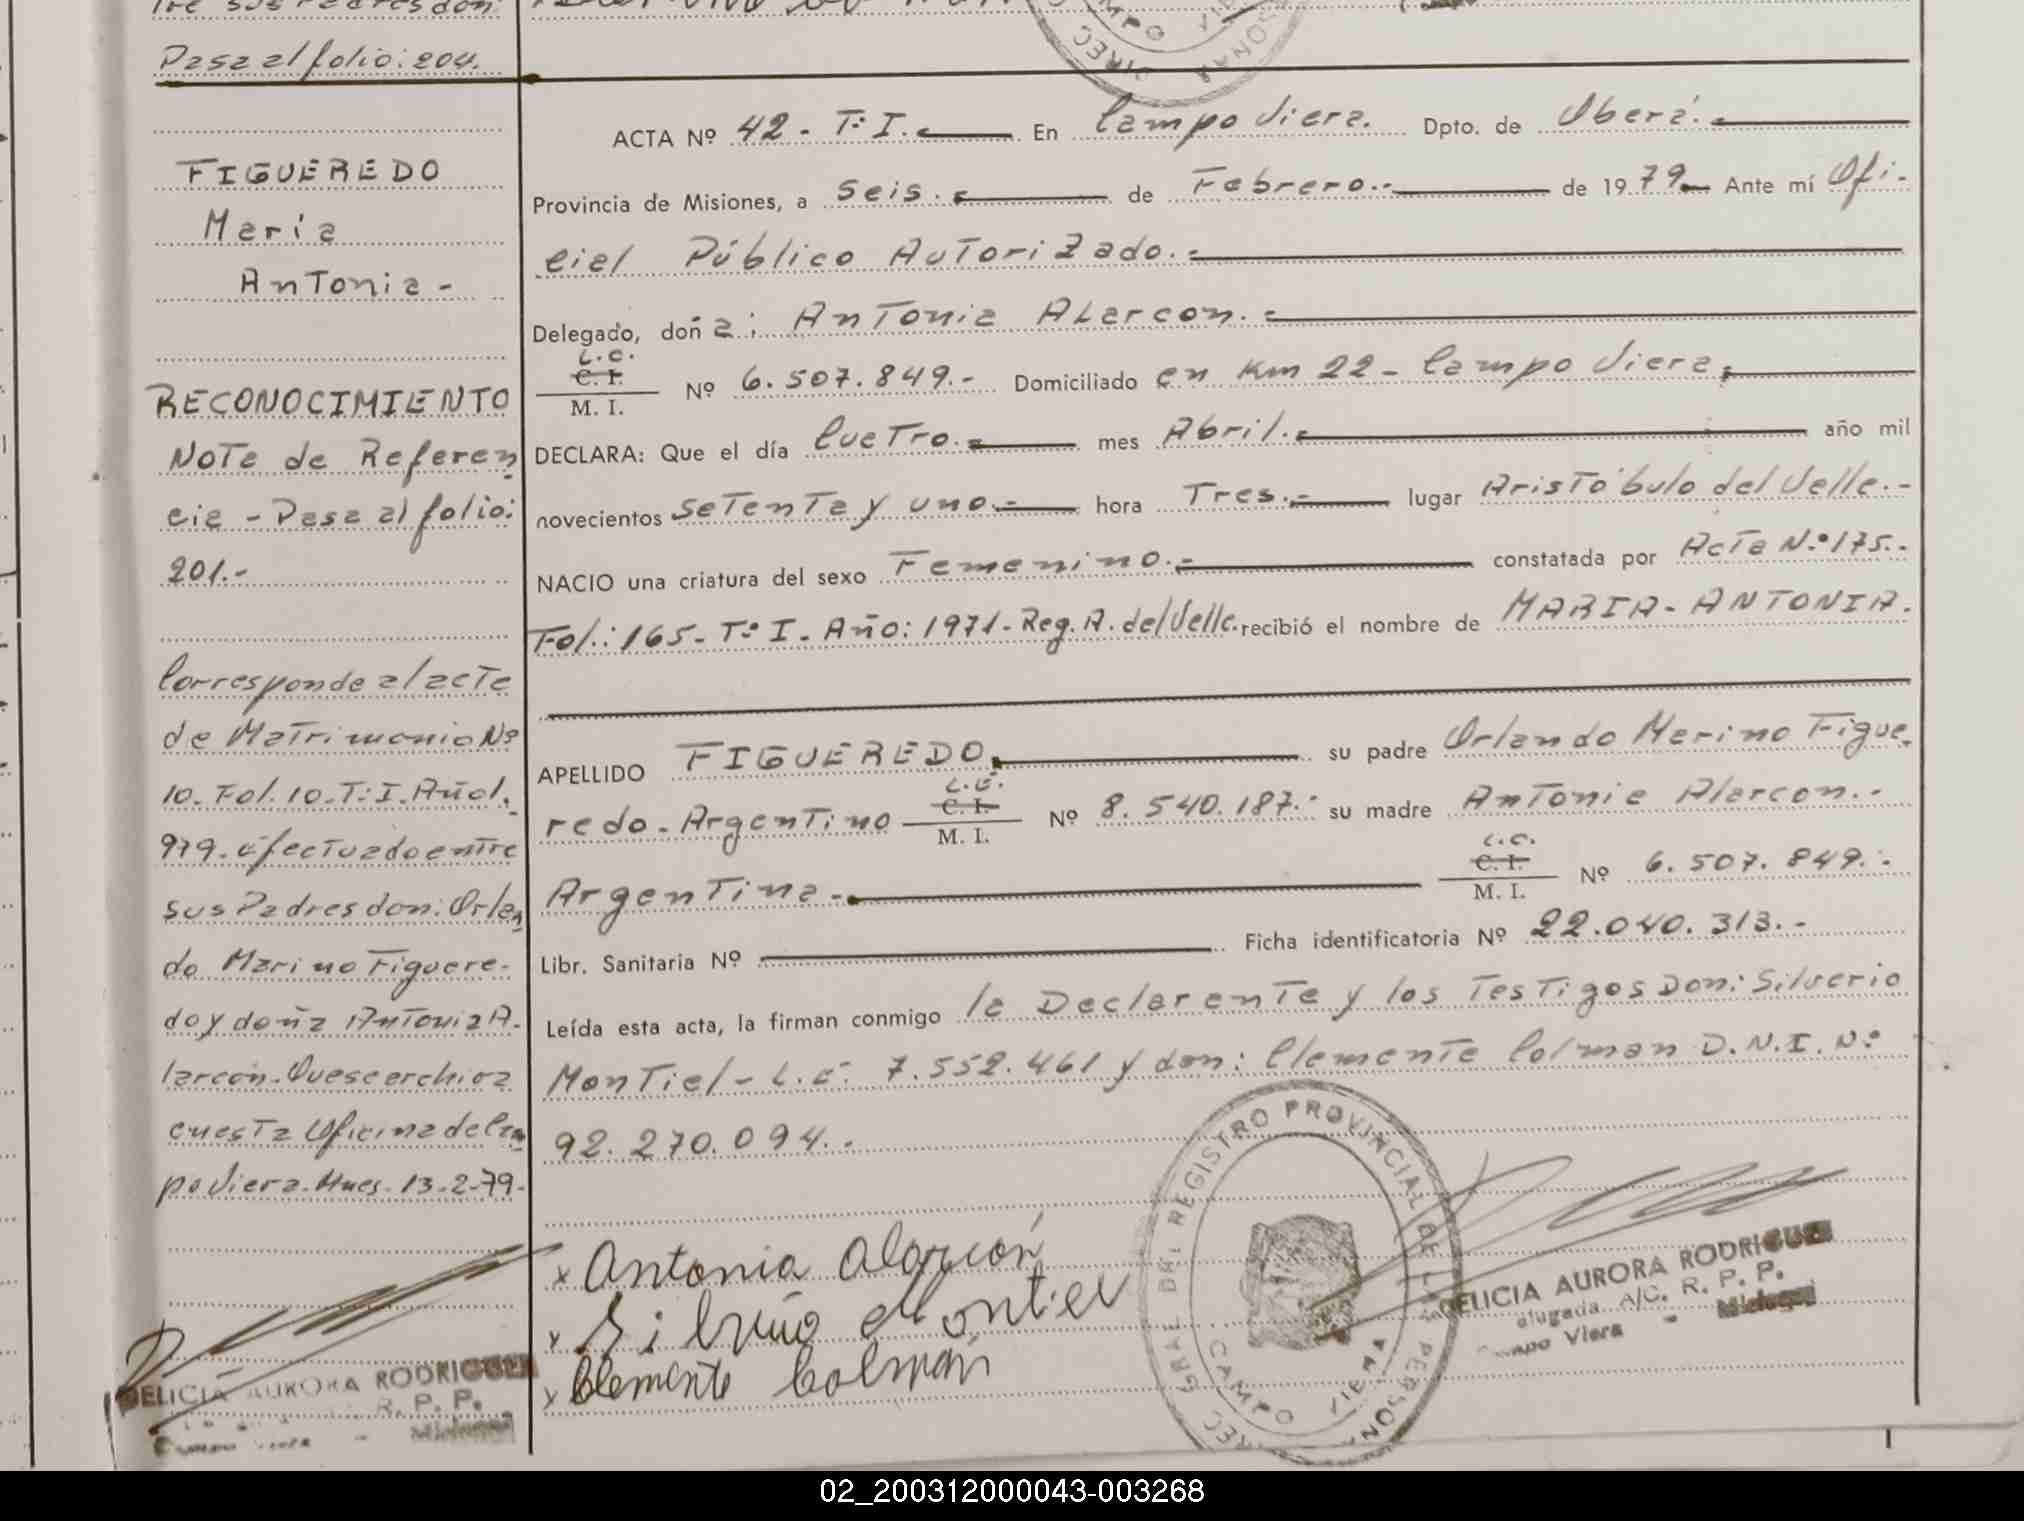 Pasa al folio: 204.
FIGUEREDO
María
Antonia -
RECONOCIMIENTO
Nota de Referen
cia - Pasa al folio:
201.-
Corresponde al acta
de Matrimonio Nº
10. Fol. 10. T: I. Año 1.
979. efectuado entre
sus Padres don: Orlan
do Marino Figuere-
do y doña Antonia A-
larcon. Que se archiva
en esta Oficina de Cam
po Viera. Mnes. 13-2-79.
DELICIA AURORA RODRIGUEZ
R. P. P.
ACTA Nº 42 - T: I. En Campo Viera. Dpto. de Oberá.
Provincia de Misiones, a seis. de Febrero.- de 1979 Ante mí Ofi-
cial Público Autorizado.-
Delegado, doña: Antonia Alarcon.-
L.C.
C. I.
M. I. Nº 6.507.849.- Domiciliado en Km 22 - Campo Viera,
DECLARA: Que el día Cuatro.- mes Abril. año mil
novecientos setenta y uno.- hora Tres.- lugar Aristóbulo del Valle.-
NACIO una criatura del sexo Femenino.- constatada por Acta N.º 175.-
Fol.: 165- Tº I. Año: 1971- Reg. A. del Valle. recibió el nombre de MARIA - ANTONIA.
APELLIDO FIGUEREDO. su padre Orlando Marino Figue-
redo - Argentino L.E. C. I. M. I. Nº 8.540.187.- su madre Antonia Alarcon.-
Argentina - L.C. C. I. M. I. Nº 6.507.849.-
Libr. Sanitaria Nº Ficha identificatoria Nº 22.040.313.-
Leída esta acta, la firman conmigo la Declarante y los Testigos Don: Silverio
Montiel - L.E. 7.552.461 y don: Clemente Colman D.N.I. Nº
92.270.094.-
x Antonia Alarcón
x Silverio Montiel
x Clemente Colmán
DIREC. GRAL. DEL REGISTRO PROVINCIAL DE LAS PERSONAS
CAMPO VIERA
DELICIA AURORA RODRIGUEZ
A/C. R. P. P.
Campo Viera -
02_200312000043-003268